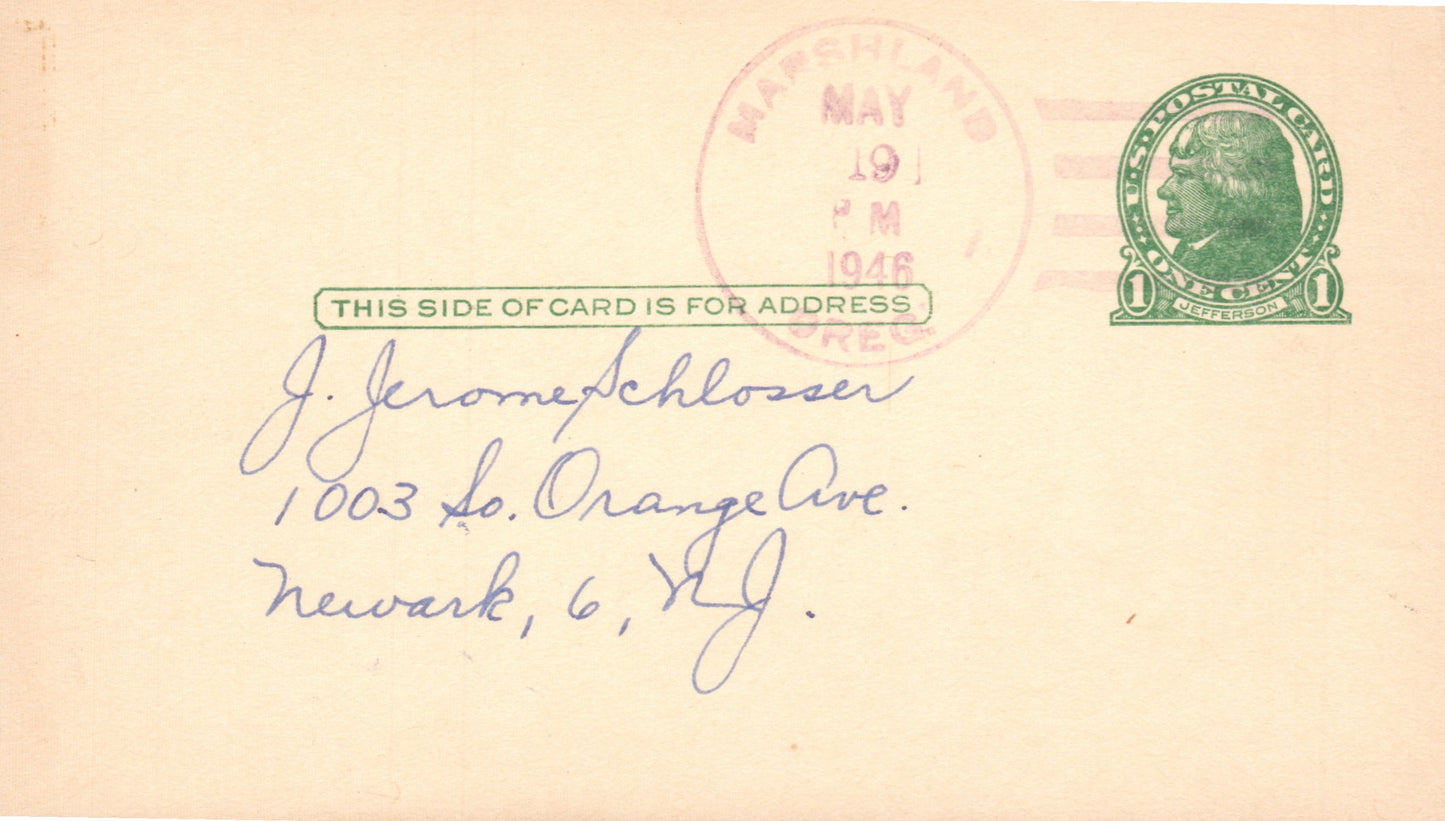 MARSHLAND
MAY
19
M
1946
OREG.
U.S. POSTAL CARD
ONE CENT
1 JEFFERSON 1
THIS SIDE OF CARD IS FOR ADDRESS
J. Jerome Schlosser
1003 So. Orange Ave.
Newark, 6, N.J.